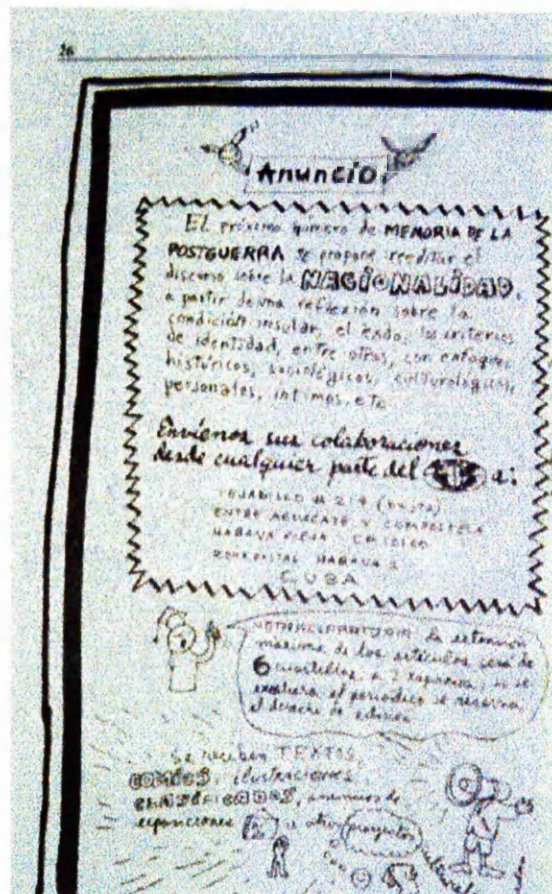 26
Anuncio
El próximo número de MEMORIA DE LA
POSTGUERRA se propone reeditar el
discurso sobre la NACIONALIDAD,
a partir de una reflexión sobre la
condición insular, el éxodo, los criterios
de identidad, entre otros, con enfoques
históricos, sociológicos, culturológicos,
personales, íntimos, etc.
Envíenos sus colaboraciones
desde cualquier parte del a:
TEJADILLO # 214
ENTRE AGUACATE Y COMPOSTELA
HABANA VIEJA CP 10100
ZONA POSTAL HABANA 1
CUBA
la extensión
máxima de los artículos será de
6 cuartillas a 2 espacios, si se
el periódico se reserva
el derecho de
Se reciben TEXTOS,
COMICS, ilustraciones,
CLASIFICADOS, anuncios de
exposiciones u otros proyectos